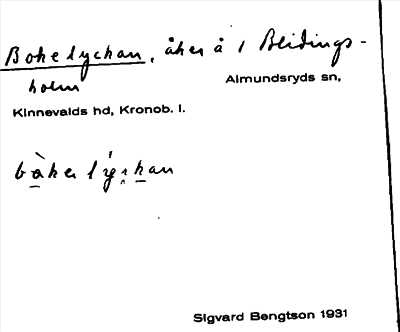 Bokelyckan, åker å 1 Blidings-
holm
Almundsryds sn,
Kinnevalds hd, Kronob. l.
Sigvard Bengtson 1931